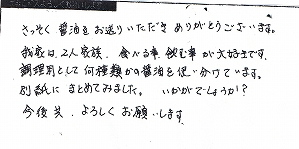 さっそく醤油をお送りいただきありがとうございます。
我家は、2人家族、食べる事、飲む事が大好きです。
調理用として何種類かの醤油を使い分けています。
別紙にまとめてみました。いかがでしょうか?
今後共、よろしくお願いします